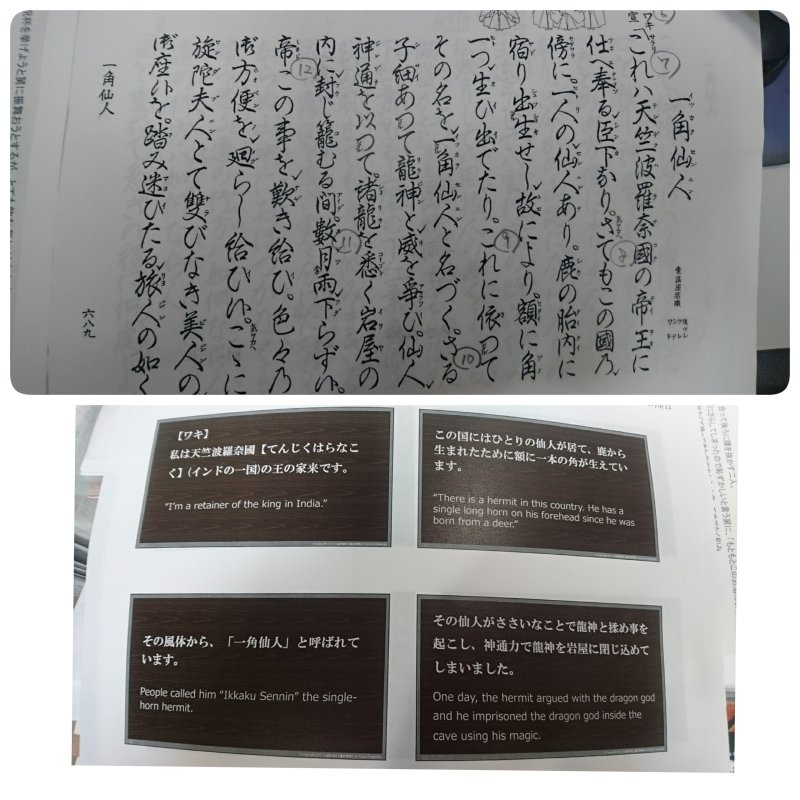 ⑦ 一角仙人
ワキ「これハ天竺波羅奈國の帝王に
仕へ奉る臣下なり。さてもこの國乃
傍に一人の仙人あり。鹿の胎内に
宿り出生せし故により。額に角
一つ生ひ出でたり。これに依つて
その名を一角仙人と名づく。さる
子細あつて龍神と威を爭ひ。仙人
神通を以つて。諸龍を悉く岩屋の
内に封じ籠むる間。數月雨下らず候。
帝この事を歎き給ひ。色々乃
御方便を廻らし給ひ候。こゝに
旋陀夫人とて雙びなき美人の
御座候を。踏み迷ひたる旅人の如く
一角仙人
六八九
杯を挙げようと舅に振舞おうとするが、
【ワキ】
私は天竺波羅奈國【てんじくはらなこ
く】(インドの一国)の王の家来です。
“I'm a retainer of the king in India.”
この国にはひとりの仙人が居て、鹿から
生まれたために額に一本の角が生えてい
ます。
“There is a hermit in this country. He has a
single long horn on his forehead since he was
born from a deer.”
その風体から、「一角仙人」と呼ばれて
います。
People called him “Ikkaku Sennin” the single-
horn hermit.
その仙人がささいなことで龍神と揉め事を
起こし、神通力で龍神を岩屋に閉じ込めて
しまいました。
One day, the hermit argued with the dragon god
and he imprisoned the dragon god inside the
cave using his magic.